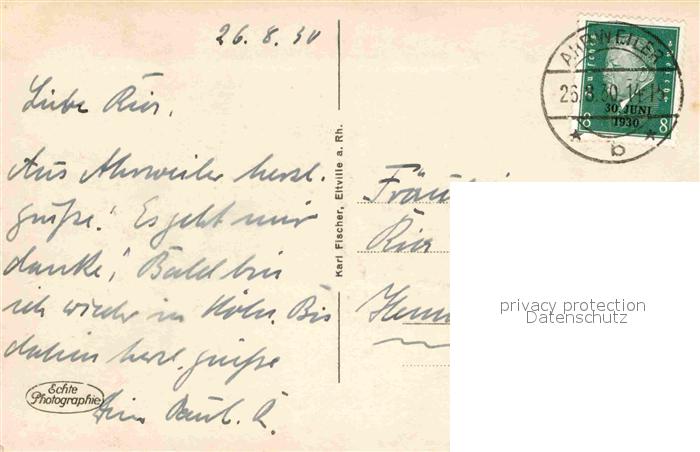 26.8.30
Liebe Ria,
Aus Ahrweiler herzl.
grüße! Es geht mir
danke! Bald bin
ich wieder in Köln. Bis
dahin herzl. grüße
Dein Paul.
Echte
Photographie
Karl Fischer, Eltville a. Rh.
AHRWEILER
26.8.30.14-15
b
30. JUNI
1930
8 8
Ria
privacy protection
Datenschutz